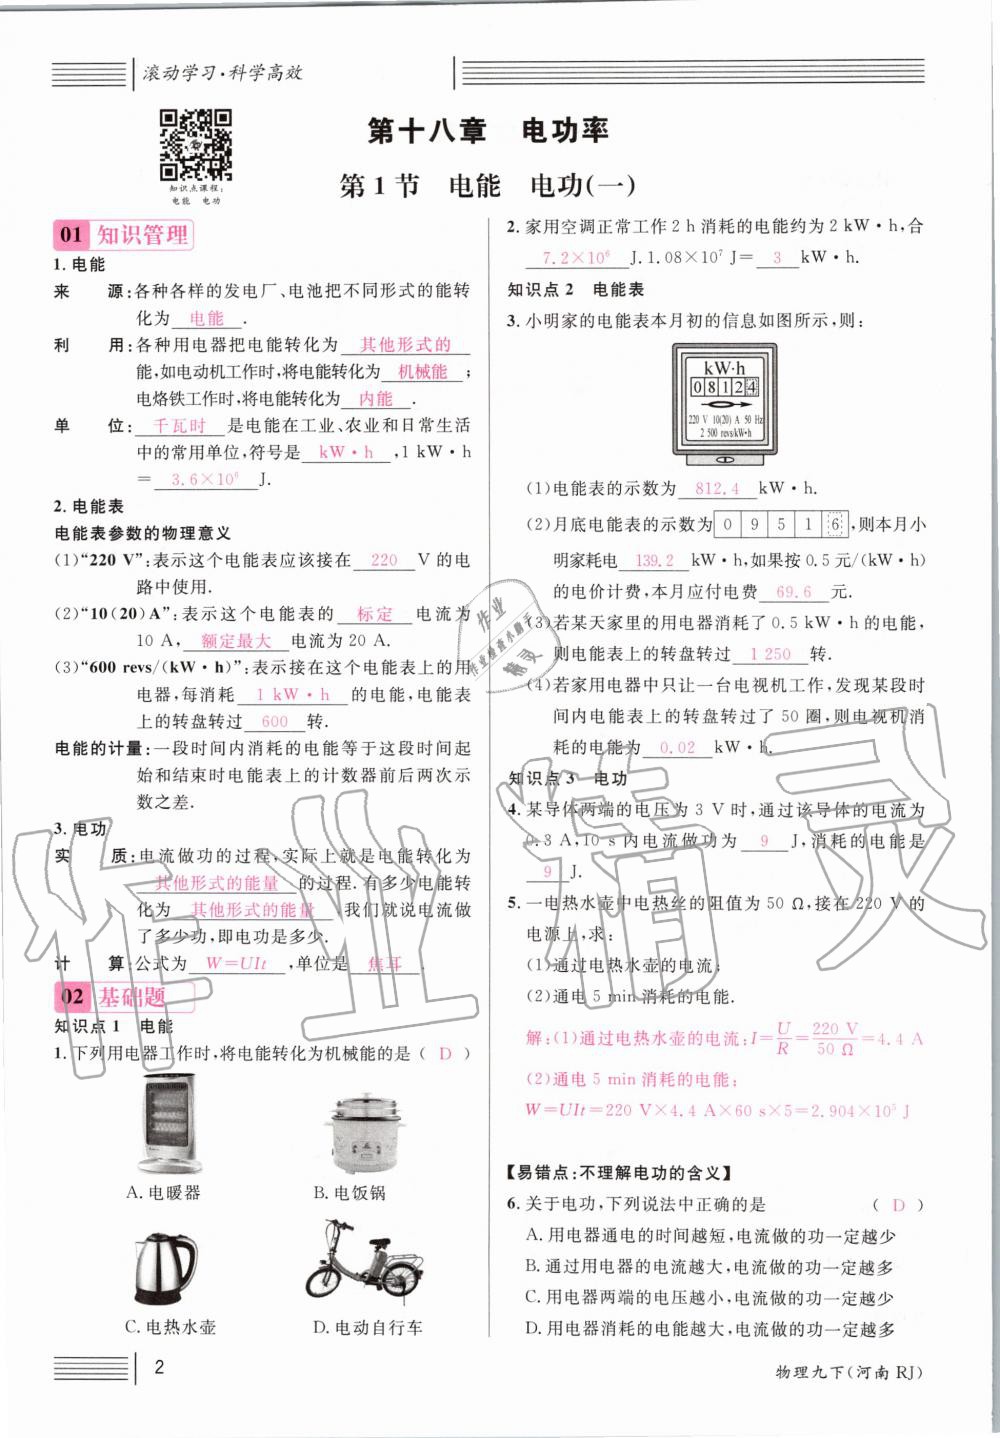 滚动学习·科学高效
知识点课程:
电能 电功
第十八章 电功率
第1节 电能 电功(一)
01 知识管理
1.电能
来 源:各种各样的发电厂、电池把不同形式的能转
化为 电能 .
利 用:各种用电器把电能转化为 其他形式的
能,如电动机工作时,将电能转化为 机械能 ;
电烙铁工作时,将电能转化为 内能 .
单 位: 千瓦时 是电能在工业、农业和日常生活
中的常用单位,符号是 kW·h ,1 kW·h
= 3.6×10⁶ J.
2.电能表
电能表参数的物理意义
(1)“220 V”:表示这个电能表应该接在 220 V的电
路中使用.
(2)“10(20)A”:表示这个电能表的 标定 电流为
10 A, 额定最大 电流为20 A.
(3)“600 revs/(kW·h)”:表示接在这个电能表上的用
电器,每消耗 1 kW·h 的电能,电能表
上的转盘转过 600 转.
电能的计量:一段时间内消耗的电能等于这段时间起
始和结束时电能表上的计数器前后两次示
数之差.
3.电功
实 质:电流做功的过程,实际上就是电能转化为
其他形式的能量 的过程.有多少电能转
化为 其他形式的能量 ,我们就说电流做
了多少功,即电功是多少.
计 算:公式为 W=UIt ,单位是 焦耳 .
02 基础题
知识点1 电能
1.下列用电器工作时,将电能转化为机械能的是( D )
A.电暖器
B.电饭锅
C.电热水壶
D.电动自行车
2.家用空调正常工作2 h消耗的电能约为2 kW·h,合
7.2×10⁶ J.1.08×10⁷ J= 3 kW·h.
知识点2 电能表
3.小明家的电能表本月初的信息如图所示,则:
kW·h
0 8 1 2 4
220 V 10(20) A 50 Hz
2 500 revs/kW·h
(1)电能表的示数为 812.4 kW·h.
(2)月底电能表的示数为 0 9 5 1 6 ,则本月小
明家耗电 139.2 kW·h,如果按0.5元/(kW·h)
的电价计费,本月应付电费 69.6 元.
(3)若某天家里的用电器消耗了0.5 kW·h的电能,
则电能表上的转盘转过 1 250 转.
(4)若家用电器中只让一台电视机工作,发现某段时
间内电能表上的转盘转过了50圈,则电视机消
耗的电能为 0.02 kW·h.
知识点3 电功
4.某导体两端的电压为3 V时,通过该导体的电流为
0.3 A,10 s内电流做功为 9 J,消耗的电能是
9 J.
5.一电热水壶中电热丝的阻值为50 Ω,接在220 V的
电源上,求:
(1)通过电热水壶的电流;
(2)通电5 min消耗的电能.
解:(1)通过电热水壶的电流:I=U/R=220 V/50 Ω=4.4 A
(2)通电5 min消耗的电能:
W=UIt=220 V×4.4 A×60 s×5=2.904×10⁵ J
【易错点:不理解电功的含义】
6.关于电功,下列说法中正确的是 ( D )
A.用电器通电的时间越短,电流做的功一定越少
B.通过用电器的电流越大,电流做的功一定越多
C.用电器两端的电压越小,电流做的功一定越少
D.用电器消耗的电能越大,电流做的功一定越多
作业精灵
作业检查小助手
2
物理九下(河南 RJ)